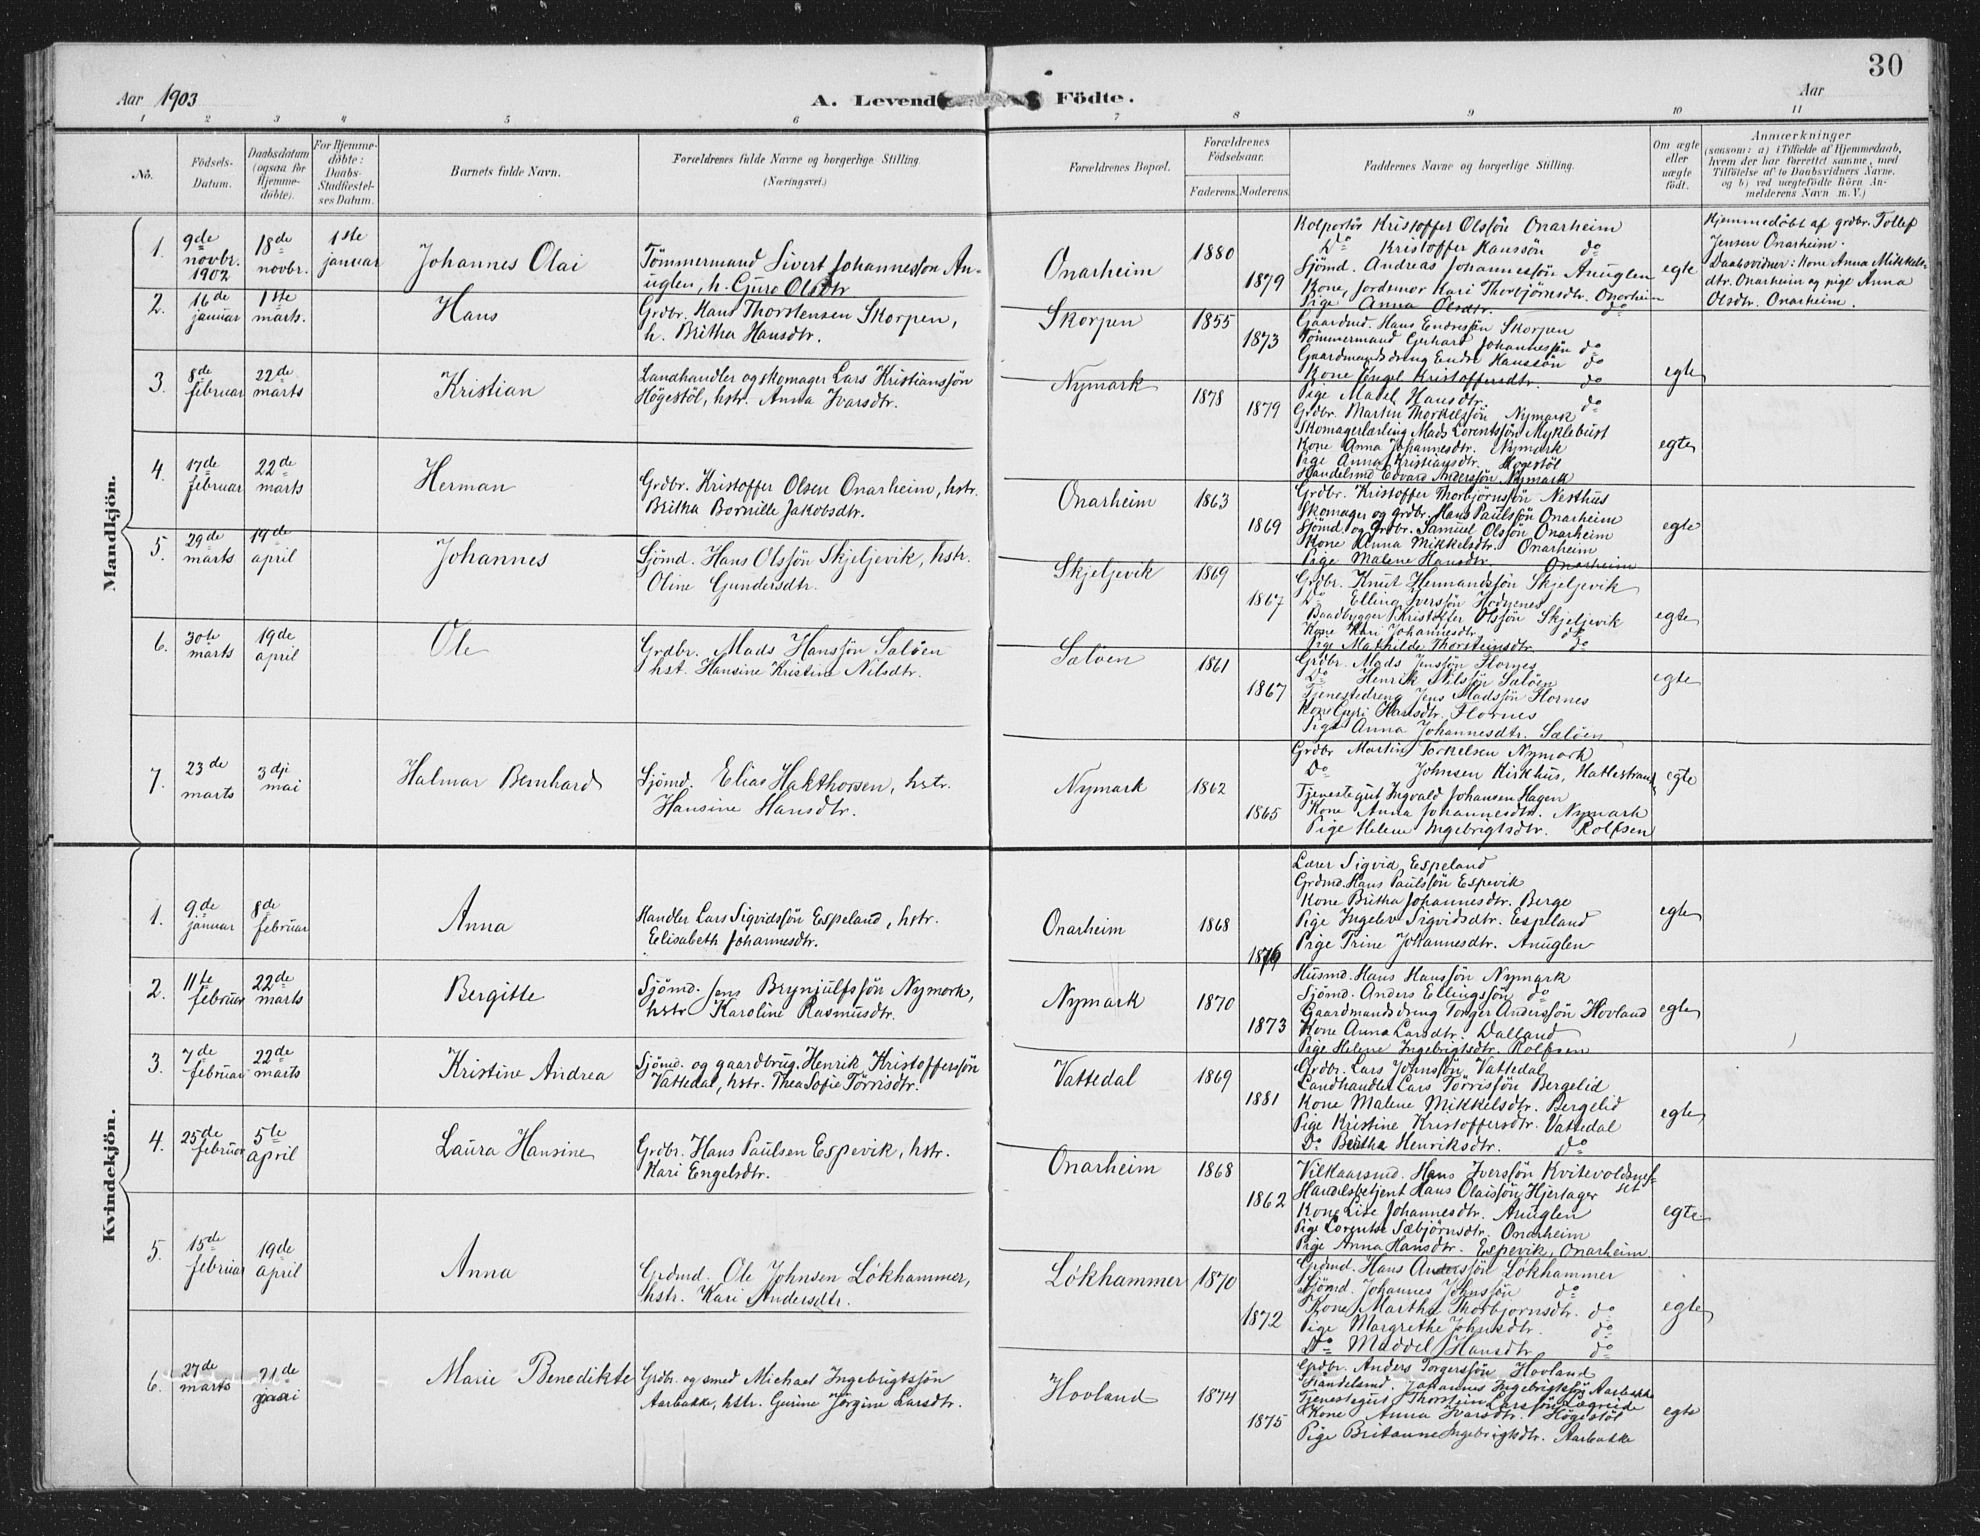 30
Aar 1903
A. Levende Födte.
Aar
1 2 3 4 5 6 7 8 9 10 11
No.
Födsels-Datum.
Daabsdatum (ogsaa for Hjemme-döbte).
For Hjemme-döbte: Daabs-Stadfæstel-ses Datum.
Barnets fulde Navn.
Forældrenes fulde Navne og borgerlige Stilling. (Næringsvei.)
Forældrenes Bopæl.
Forældrenes Födselsaar.
Faderens. Moderens.
Faddernes Navne og borgerlige Stilling.
Om ægte eller uægte födt.
Anmærkninger
(saasom: a) i Tilfælde af Hjemmedaab,
hvem der har forrettet samme, med
Tilföielse af to Daabsvidners Navne,
og b) ved uægtefödte Börn An-
melderens Navn m. V.)
Mandkjön.
1. 9de novbr. 1902
18de novbr.
1ste januar
Johannes Olai
Tömmermand Sivert Johannesson An-
uglen, h. Guro Olsdtr
Onarheim
1880
1879
Kolportör Kristoffer Olssön Onarheim
Do Kristoffer Hanssön do
Sjömd. Andreas Johannessön Anuglen
Kone, Jordemor Kari Thorbjörnsdtr. Onarheim
Pige Anna Olsdtr. do
egte
Hjemmedöbt af grdbr. Tollef
Jensen Onarheim.
Daabsvidner: Kone Anna Mikkels-
dtr. Onarheim og pige Anna
Olsdtr. Onarheim.
2. 16de januar
1ste marts.
Hans
Grdbr. Hans Thorstensen Skorpen,
h. Britha Hansdtr.
Skorpen
1855
1873
Gaardmd. Hans Endressön Skorpen
Tömmermand Gerhard Johannessön do
Gaardmandsdreng Endre Hanssön do
Kone Engel Kristoffersdtr. do
Pige Madel Hansdtr. do
egte
3. 8de februar
22de marts
Kristian
Landhandler og skomager Lars Kristianssön
Högestöl, hstr. Anna Ivarsdtr.
Nymark
1878
1879
Grdbr. Martin Thorkelssön Nymark
Skomagerlærling Mads Lorentssön Myklebust
Kone Anna Johannesdtr. Nymark
Pige Anna Kristiansdtr. Högestöl
Handelsmd Edvard Anderssön Nymark
egte
4. 17de februar
22de marts
Herman
Grdbr. Kristoffer Olsen Onarheim, hstr.
Britha Bornille Jakobsdtr.
Onarheim
1863
1869
Grdbr. Kristoffer Thorbjörnssön Nesthus
Skomager og grdbr. Hans Paulssön Onarheim
Sjömd og Grdbr. Samuel Olssön Onarheim
Kone Anna Mikkelsdtr. Onarheim
Pige Malene Hansdtr. Onarheim
egte
5. 29de marts
19de april
Johannes
Sjömd. Hans Olssön Skjeljevik, hstr.
Oline Gundersdtr.
Skjeljevik
1869
1867
Grdbr. Knut Hermandssön Skjeljevik
Do Elling Iverssön Hodnenes
Baadbygger Kristoffer Olssön Skjeljevik
Kone Kari Johannesdtr. do
Pige Mathilde Thorsteinsdtr. do
egte
6. 30te marts
19de april
Ole
Grdbr. Mads Hanssön Salöen
hst. Hansine Kristine Nilsdtr.
Salöen
1861
1867
Grdbr. Mads Jenssön Flornes
Do Henrik Nilssön Salöen
Tjenestedreng Jens Madssön Flornes
Kone Guri Hansdtr. Flornes
Pige Anna Johannesdtr. Salöen
egte
7. 23de marts
3dje mai
Halmar Bernhard
Sjömd. Elias Hakthorsen, hstr.
Hansine Hansdtr.
Nymark
1862
1865
Grdbr Martin Torkelsen Nymark
Do Johnsen Kirkhus, Hattestrand
Tjenestegut Ingvald Johansen Hagen
Kone Anna Johannesdtr. Nymark
Pige Helene Ingebrigtsdtr. Rolfsen
egte
Kvindekjön.
1. 9de januar
8de februar
Anna
Handler Lars Sigvidssön Espeland, hstr.
Elisabeth Johannesdtr.
Onarheim
1868
Lærer Sigvid Espeland
Grdmd. Hans Paulssön Espevik
Kone Britha Johannesdtr. Berge
Pige Ingelev Sigvidsdtr. Espeland
Pige Trine Johannesdtr. Anuglen
egte
2. 11te februar
22de marts
Bergitte
Sjömd. Jens Brynjulfssön Nymark,
hstr Karoline Rasmusdtr.
Nymark
1870
1873
Husmd. Hans Hanssön Nymark
Sjömd. Anders Ellingssön do
Gaardmandsdreng Torger Anderssön Hovland
Kone Anna Larsdtr. Dalland
Pige Helene Ingebrigtsdtr. Rolfsen
egte
3. 7de februar
22de marts
Kristine Andrea
Sjömd. og gaardbrug. Henrik Kristofferssön
Vattedal, hstr. Thea Sofie Törrisdtr.
Vattedal
1869
1881
Grdbr. Lars Johnssön Vattedal
Landhandler Lars Törrissön Bergelid
Kone Malene Mikkelsdtr. Bergelid
Pige Kristine Kristoffersdtr. Vattedal
Do Bertha Henriksdtr. do
egte
4. 25de februar
5te april
Laura Hansine
Grdbr. Hans Paulsen Espevik, hstr.
Kari Engelsdtr.
Onarheim
1868
1862
Vilkaarsmd. Hans Iverssön Kvitevoldsnes-
set
Handelsbetjent Hans Olaissön Hjertager
Kone Lise Johannesdtr. Anuglen
Pige Lorentse Sæbjörnsdtr. Onarheim
Pige Anna Hansdtr. Espevik, Onarheim
egte
5. 15de februar
19de april
Anna
Grdmd. Ole Johnsen Lökhammer,
hstr. Kari Andersdtr.
Lökhammer
1870
1872
Grdmd. Hans Anderssön Lökhammer
Sjömd. Johannes Johnssön do
Kone Martha Thorbjornsdtr. do
Pige Margrethe Johnsdtr. do
Do Maddel Hansdtr. do
egte
6. 27de marts
21de mai
Marie Benedikte
Grdbr. og smed Michael Ingebrigtssön
Aarbakke, hstr. Gurine Jörgine Larsdtr.
Hovland
1874
1875
Grdbr. Anders Torgerssön Hovland
Handelsmd. Johannes Ingebrigtssön Aarbakke
Tjenestegut Thorstein Larssön Lægreide
Kone Anna Ivarsdtr. Högestöl
Pige Britanne Ingebrigtsdtr. Aarbakke
egte